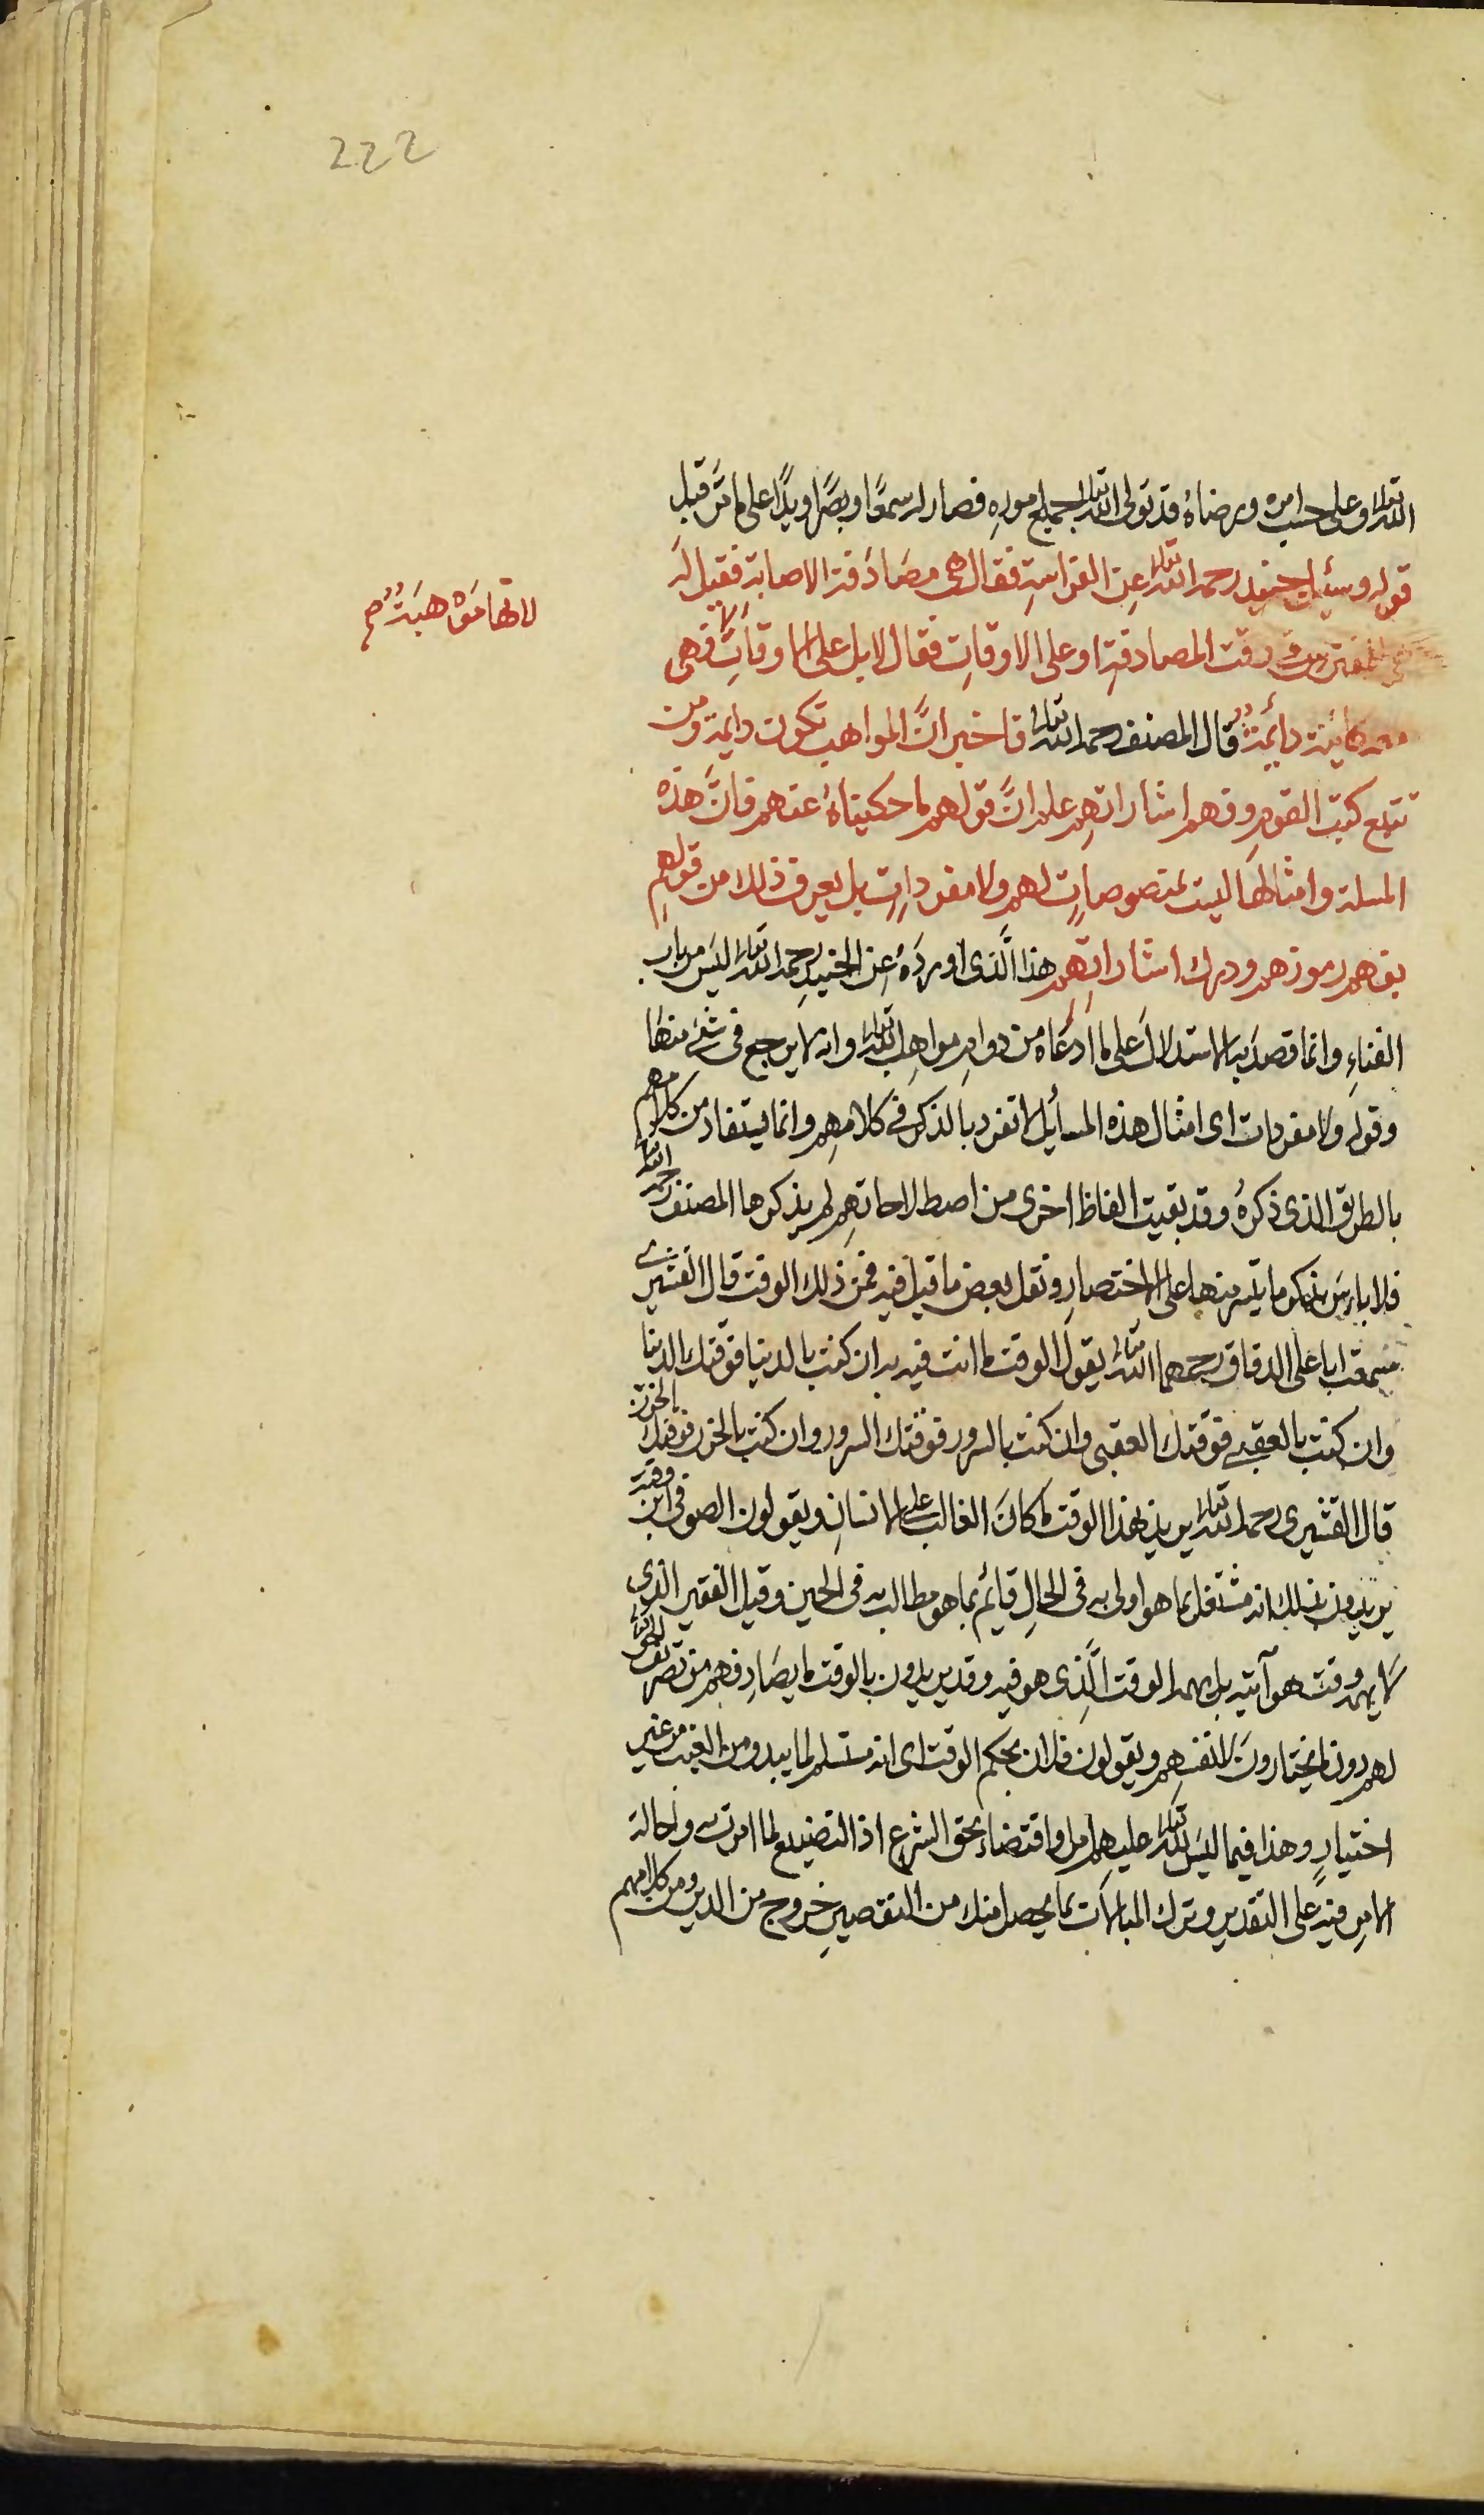 222
الله تعالى وعلى حسب امره ورضاهُ قد تولى الله تعالى بجميع امورهِ فصار له سمعًا وبصرًا ويدًا على ما مَرَّ قبل
قوله وسئل الجنيد رحمه الله تعالى عن الفراسةِ فقال هى مصَادَفة الاصابةِ فقيل لَه
هى للمتفرس فى وقت المصادفةِ او على الاوقاتِ فقال لا بل على الاوقاتِ فهى
لانها مَوْهبَة صح
معه كائنة دائمة قال المصنف رحمه الله تعالى فاخبر انَّ المواهب تكون دايمة ومن
تتبع كتب القومِ وفهم اشاراتهِم علم انَّ قولهم ما حكيناهُ عنهم فانَّ هذه
المسلة وامثالهَا ليست بمنصوصاتٍ لهم ولا مفرداتٍ بل يعرف ذلك من قولهم
بفهم رموزهم ودرك اشاراتِهِم هذا الَّذى اوردَهُ عن الجنيد رحمه الله تعالى ليسَ من باب
الفناءِ وانما قصدَ به الاستدلالَ على ما ادَّعاه من دوامِ مواهِب الله تعالى وانه لا يرجع فى شئ منها
وقوله ولا مفردات اى امثال هذه المسائل لا تفرد بالذكر فى كلامهِم وانما يستفاد من كلامهم
بالطريق الذى ذكرهُ وقد بقيت الفاظ اخرى من اصطلاحاتهِم لم يذكرها المصنف رحمه الله
فلا باس بذكر ما تيسر منها على الاختصارِ ونقل بعض ما قيل فيه فمن ذلك الوقت قال القشيرى
سمعت ابا على الدقاق رحمهما الله تعالى يقول الوقت ما انت فيه به ان كنت بالدنيا فوقتك الدنيا
وان كنت بالعقبى فوقتك العقبى وان كنت بالسرور فوقتك السرور وان كنت بالحزن فوقتك الحزن
قال القشيرى رحمه الله تعالى يريد بهذا الوقت ما كانَ الغالب على الانسانِ ويقولون الصوفى ابن وقته
يريدون بذلك انه مشتغل بما هو اولى به فى الحالِ قائم بما هو مطالب به فى الحين وقيل الفقير الذى
لا يهمه وقت هو آتيه بل يهمه الوقت الَّذِى هو فيه وقد يريدون بالوقت ما يصَادِفهم من تصريف الحق
لهم دون ما يختارونَ لانفسهِم ويقولون فلان بحكم الوقت اى انه مستسلم لما يبدو من الغيب من غير
اختيارٍ وهذا فيما ليسَ لله تعالى عليهم امر او اقتضاء بحق الشرع اذ التضييع لما امرت به واحالة
الامرِ فيه على التقدير وترك المبالات بما يحصل منك من التقصيرِ خروج من الدين ومن كلامهم